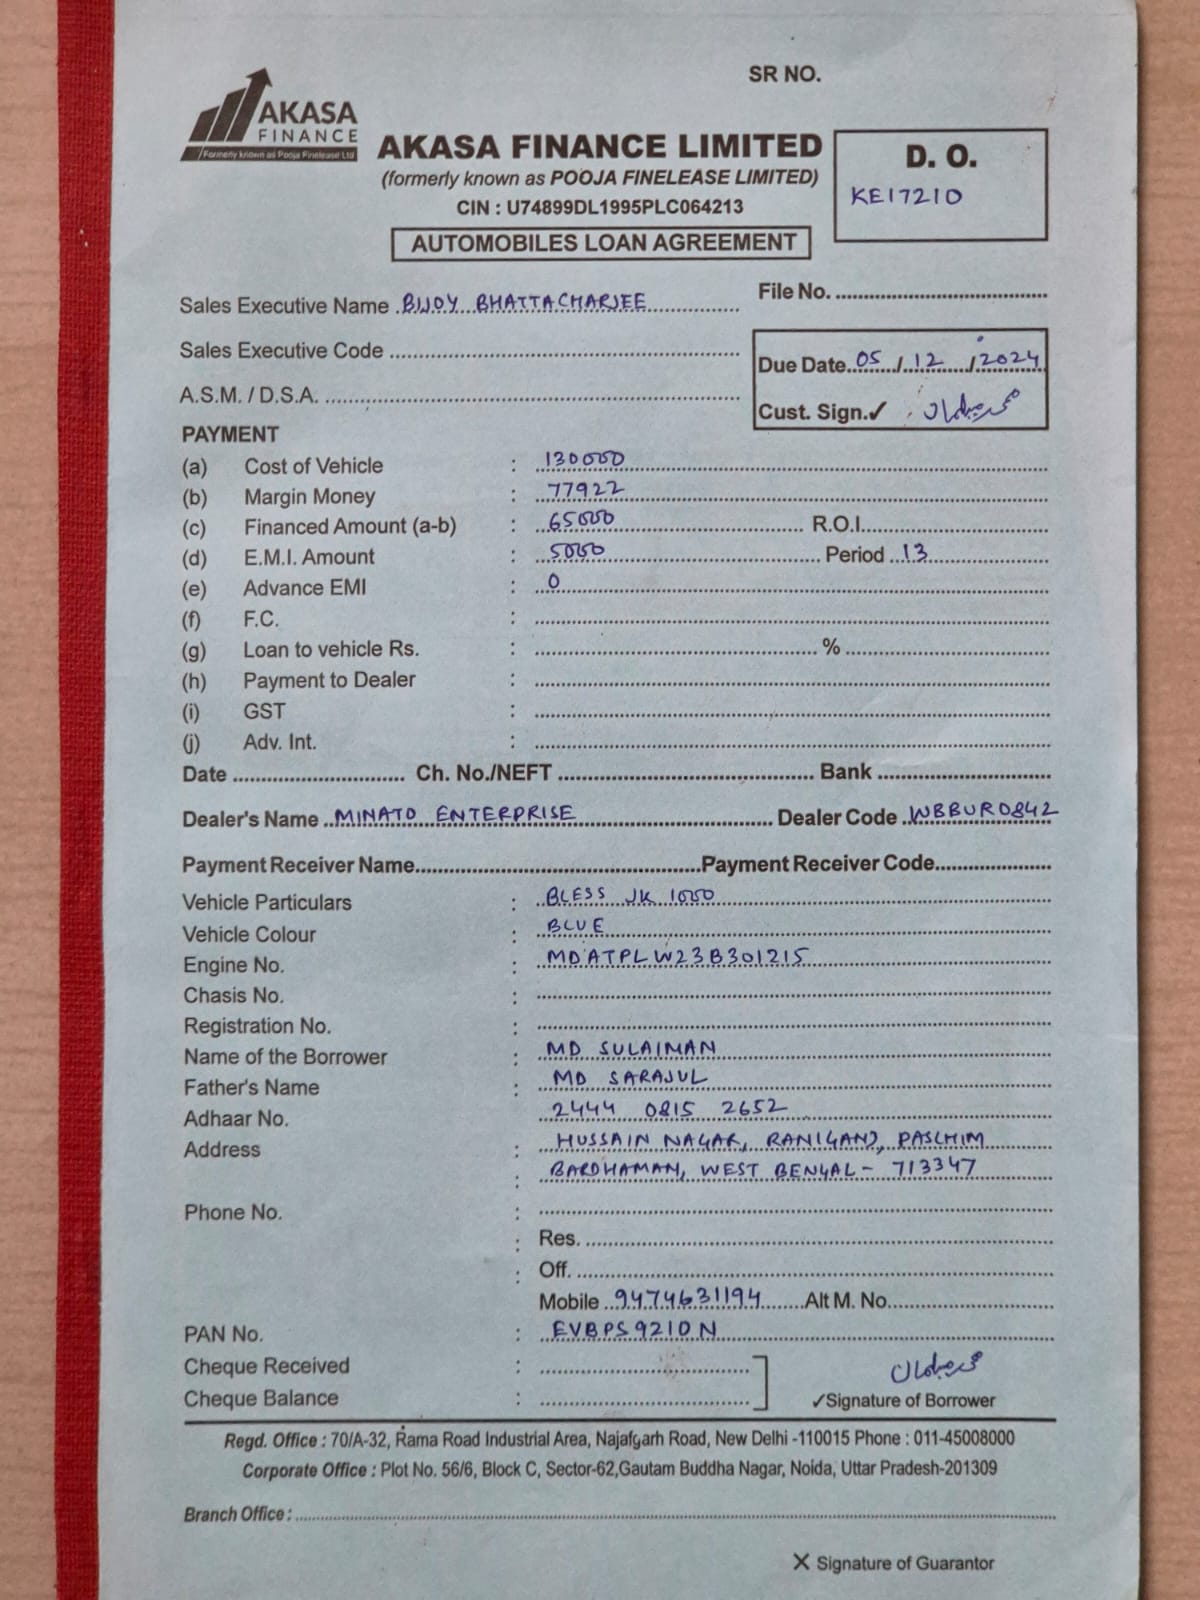 SR NO.
AKASA
FINANCE
Formerly known as Pooja Finelease Ltd
AKASA FINANCE LIMITED
(formerly known as POOJA FINELEASE LIMITED)
CIN : U74899DL1995PLC064213
AUTOMOBILES LOAN AGREEMENT
D. O.
KE17210
File No.
Sales Executive Name BIJOY BHATTACHARJEE
Sales Executive Code
Due Date 05 / 12 / 2024
A.S.M. / D.S.A.
Cust. Sign.✓ محمد سلیمان
PAYMENT
(a) Cost of Vehicle : 130000
(b) Margin Money : 77922
(c) Financed Amount (a-b) : 65000 R.O.I.
(d) E.M.I. Amount : 5000 Period 13
(e) Advance EMI : 0
(f) F.C. :
(g) Loan to vehicle Rs. : %
(h) Payment to Dealer :
(i) GST :
(j) Adv. Int. :
Date Ch. No./NEFT Bank
Dealer's Name MINATO ENTERPRISE Dealer Code WBBUR0842
Payment Receiver Name Payment Receiver Code
Vehicle Particulars : BLESS JK 1000
Vehicle Colour : BLUE
Engine No. : MDATPLW23B301215
Chasis No. :
Registration No. :
Name of the Borrower : MD SULAIMAN
Father's Name : MD SARAJUL
Adhaar No. 2444 0815 2652
Address : HUSSAIN NAGAR, RANIGANJ, PASCHIM
: BARDHAMAN, WEST BENGAL - 713347
Phone No. :
: Res.
: Off.
Mobile 9474631194 Alt M. No.
PAN No. : EVBPS9210N
Cheque Received :
محمد سلیمان
Cheque Balance :
✓Signature of Borrower
Regd. Office : 70/A-32, Rama Road Industrial Area, Najafgarh Road, New Delhi -110015 Phone : 011-45008000
Corporate Office : Plot No. 56/6, Block C, Sector-62,Gautam Buddha Nagar, Noida, Uttar Pradesh-201309
Branch Office :
X Signature of Guarantor